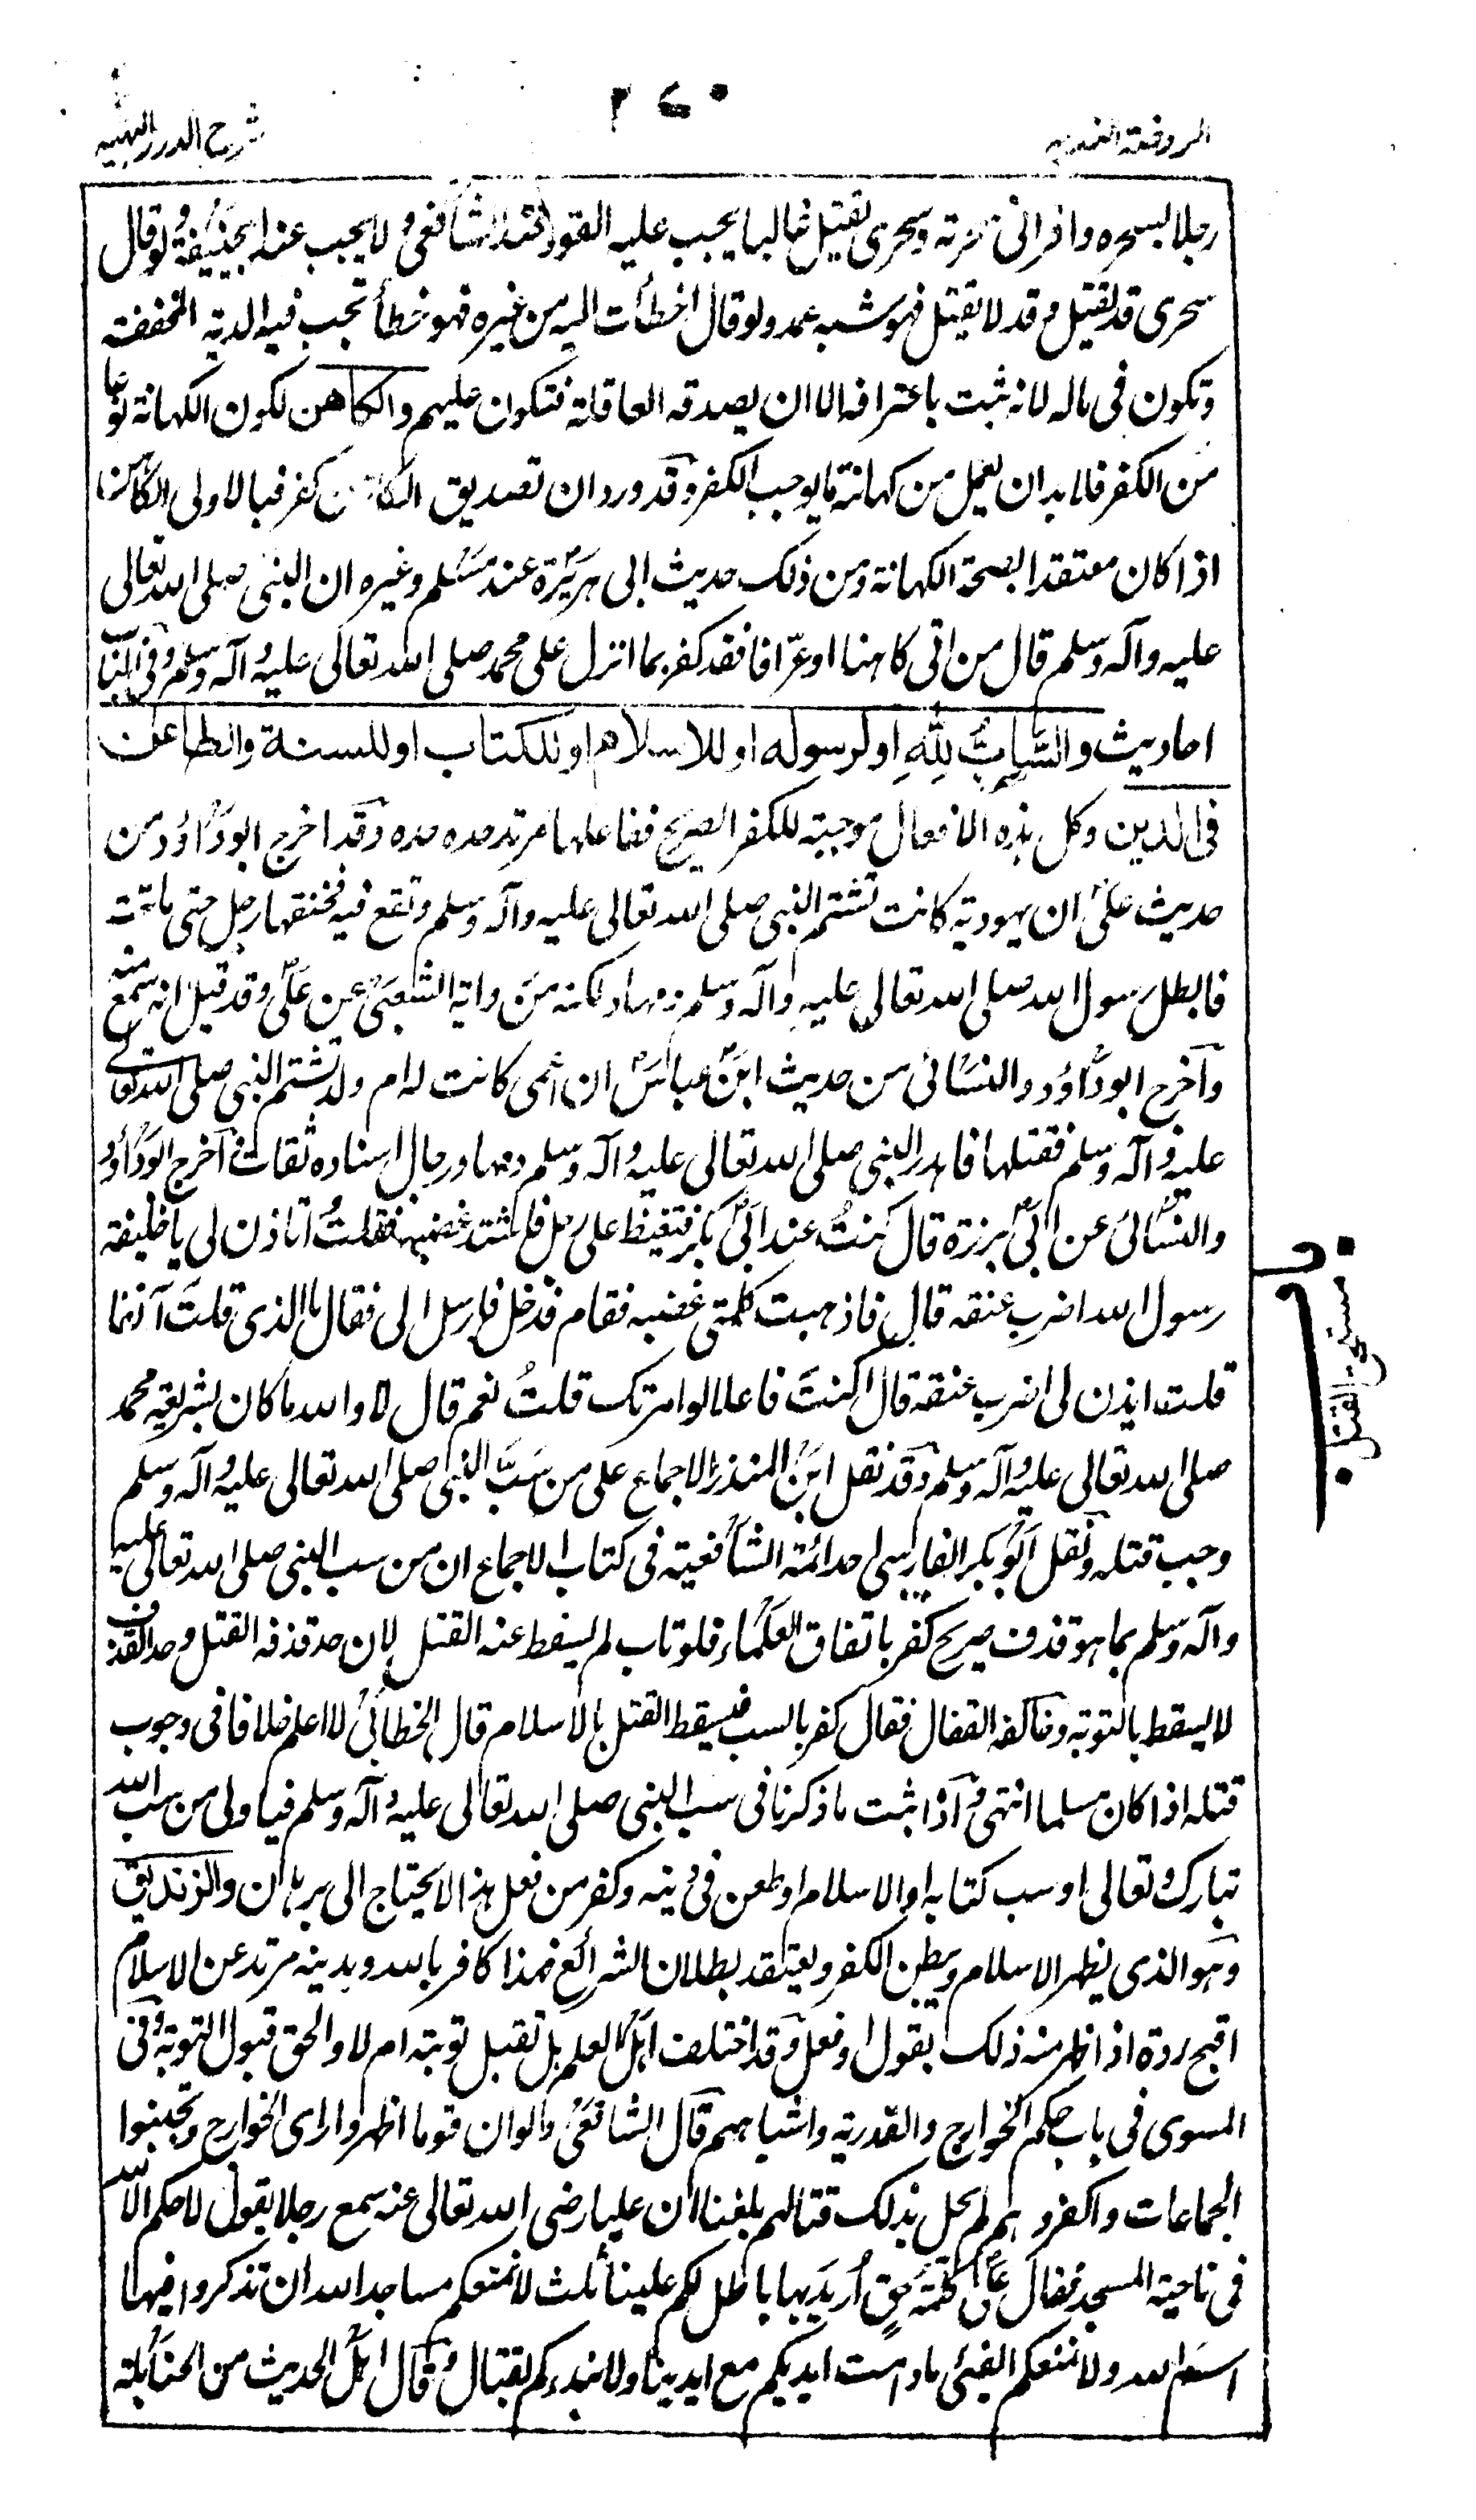 الروضة الندية
٢٧٠
شرح الدرر البهية
رجلا بسحره واقراني سحرته وسحرى يقتل غالبا يجب عليه القود عند الشافعى ولا يجب عند ابيحنيفة ولو قال
سحرى قد يقتل وقد لا يقتل فهو شبه عمد ولو قال اخطأت اليه من غيره فهو خطأ تجب فيه الدية المخففة
وتكون فى ماله لانه ثبت باعترافه الا ان يصدقه العاقلة فتكون عليهم والكاهن لكون الكهانة نوعا
من الكفر فلا بد ان يعمل من كهانته ما يوجب الكفر وقد ورد ان تصديق الكاهن كفر فبالاولى الكاهن
اذا كان معتقدا بصحة الكهانة ومن ذلك حديث ابى هريرة عند مسلم وغيره ان النبى صلى الله تعالى
عليه وآله وسلم قال من اتى كاهنا او عرّافا فقد كفر بما انزل على محمد صلى الله تعالى عليه وآله وسلم وفى الباب
احاديث والسَّابُّ لِلّهِ او لرسوله او للاسلام او للكتاب او للسنة والطاعن
فى الدين وكل هذه الافعال موجبة للكفر الصريح ففاعلها مرتد حده حده وقد اخرج ابو داؤد من
حديث على ان يهودية كانت تشتم النبى صلى الله تعالى عليه وآله وسلم وتقع فيه فخنقها رجل حتى ماتت
فابطل رسول الله صلى الله تعالى عليه وآله وسلم دمها ولكنه من رواية الشعبى عن على وقد قيل انه سمع منه
وآخرج ابو داؤد والنسائى من حديث ابن عباس ان اعمى كانت له ام ولد تشتم النبى صلى الله تعالى
عليه وآله وسلم فقتلها فاهدر النبى صلى الله تعالى عليه وآله وسلم دمها ورجال اسناده ثقات وآخرج ابو داؤد
والنسائى عن ابى برزة قال كنتُ عند ابى بكر فتغيظ على رجل فاشتد غضبه فقلتُ اتاذن لى يا خليفة
رسول الله اضرب عنقه قال فاذهبت كلمتى غضبه فقام فدخل فارسل الى فقال ما الذى قلتَ آنفا
قلت ايذن لى اضرب عنقه قال اكنتَ فاعلا لو امرتك قلتُ نعم قال لا والله ما كان لبشر بعد محمد
صلى الله تعالى عليه وآله وسلم وقد نقل ابن المنذر الاجماع على من سَبَّ النبى صلى الله تعالى عليه وآله وسلم
وجب قتله ونقل ابو بكر الفارسى احد ائمة الشافعية فى كتاب الاجماع ان من سب النبى صلى الله تعالى عليه
وآله وسلم بما هو قذف صريح كفر باتفاق العلماء فلو تاب لم يسقط عنه القتل لان حد قذفه القتل وحد القذف
لا يسقط بالتوبة وخالفه القفال فقال كفر بالسب فيسقط القتل بالاسلام قال الخطابى لا اعلم خلافا فى وجوب
قتله اذا كان مسلما انتهى وآذا ثبت ما ذكرنا فى سب النبى صلى الله تعالى عليه وآله وسلم فبالولى من سب الله
تبارك وتعالى او سب كتابه او الاسلام او طعن فى دينه وكفر من فعل هذا لا يحتاج الى برهان والزنديق
وهو الذى يظهر الاسلام ويبطن الكفر ويعتقد بطلان الشرائع فهذا كافر بالله وبدينه مرتد عن الاسلام
اقبح ردة اذا ظهر منه ذلك بقول او فعل وقد اختلف اهل العلم هل تقبل توبته ام لا والحق قبول التوبة وفى
المسوى فى باب حكم الخوارج والقدرية واشباههم قال الشافعى ولو ان قوما اظهروا راى الخوارج وتجنبوا
الجماعات واكفروهم لم يحل بذلك قتالهم بلغنا ان عليا رضى الله تعالى عنه سمع رجلا يقول لا حكم الا لله
فى ناحية المسجد فقال على كلمة حق اُريد بها باطل لكم علينا ثلث لا نمنعكم مساجد الله ان تذكروا فيها
اسم الله ولا نمنعكم الفئى ما دامت ايديكم مع ايدينا ولا نبدءكم بقتال وقال اهل الحديث من الحنابلة